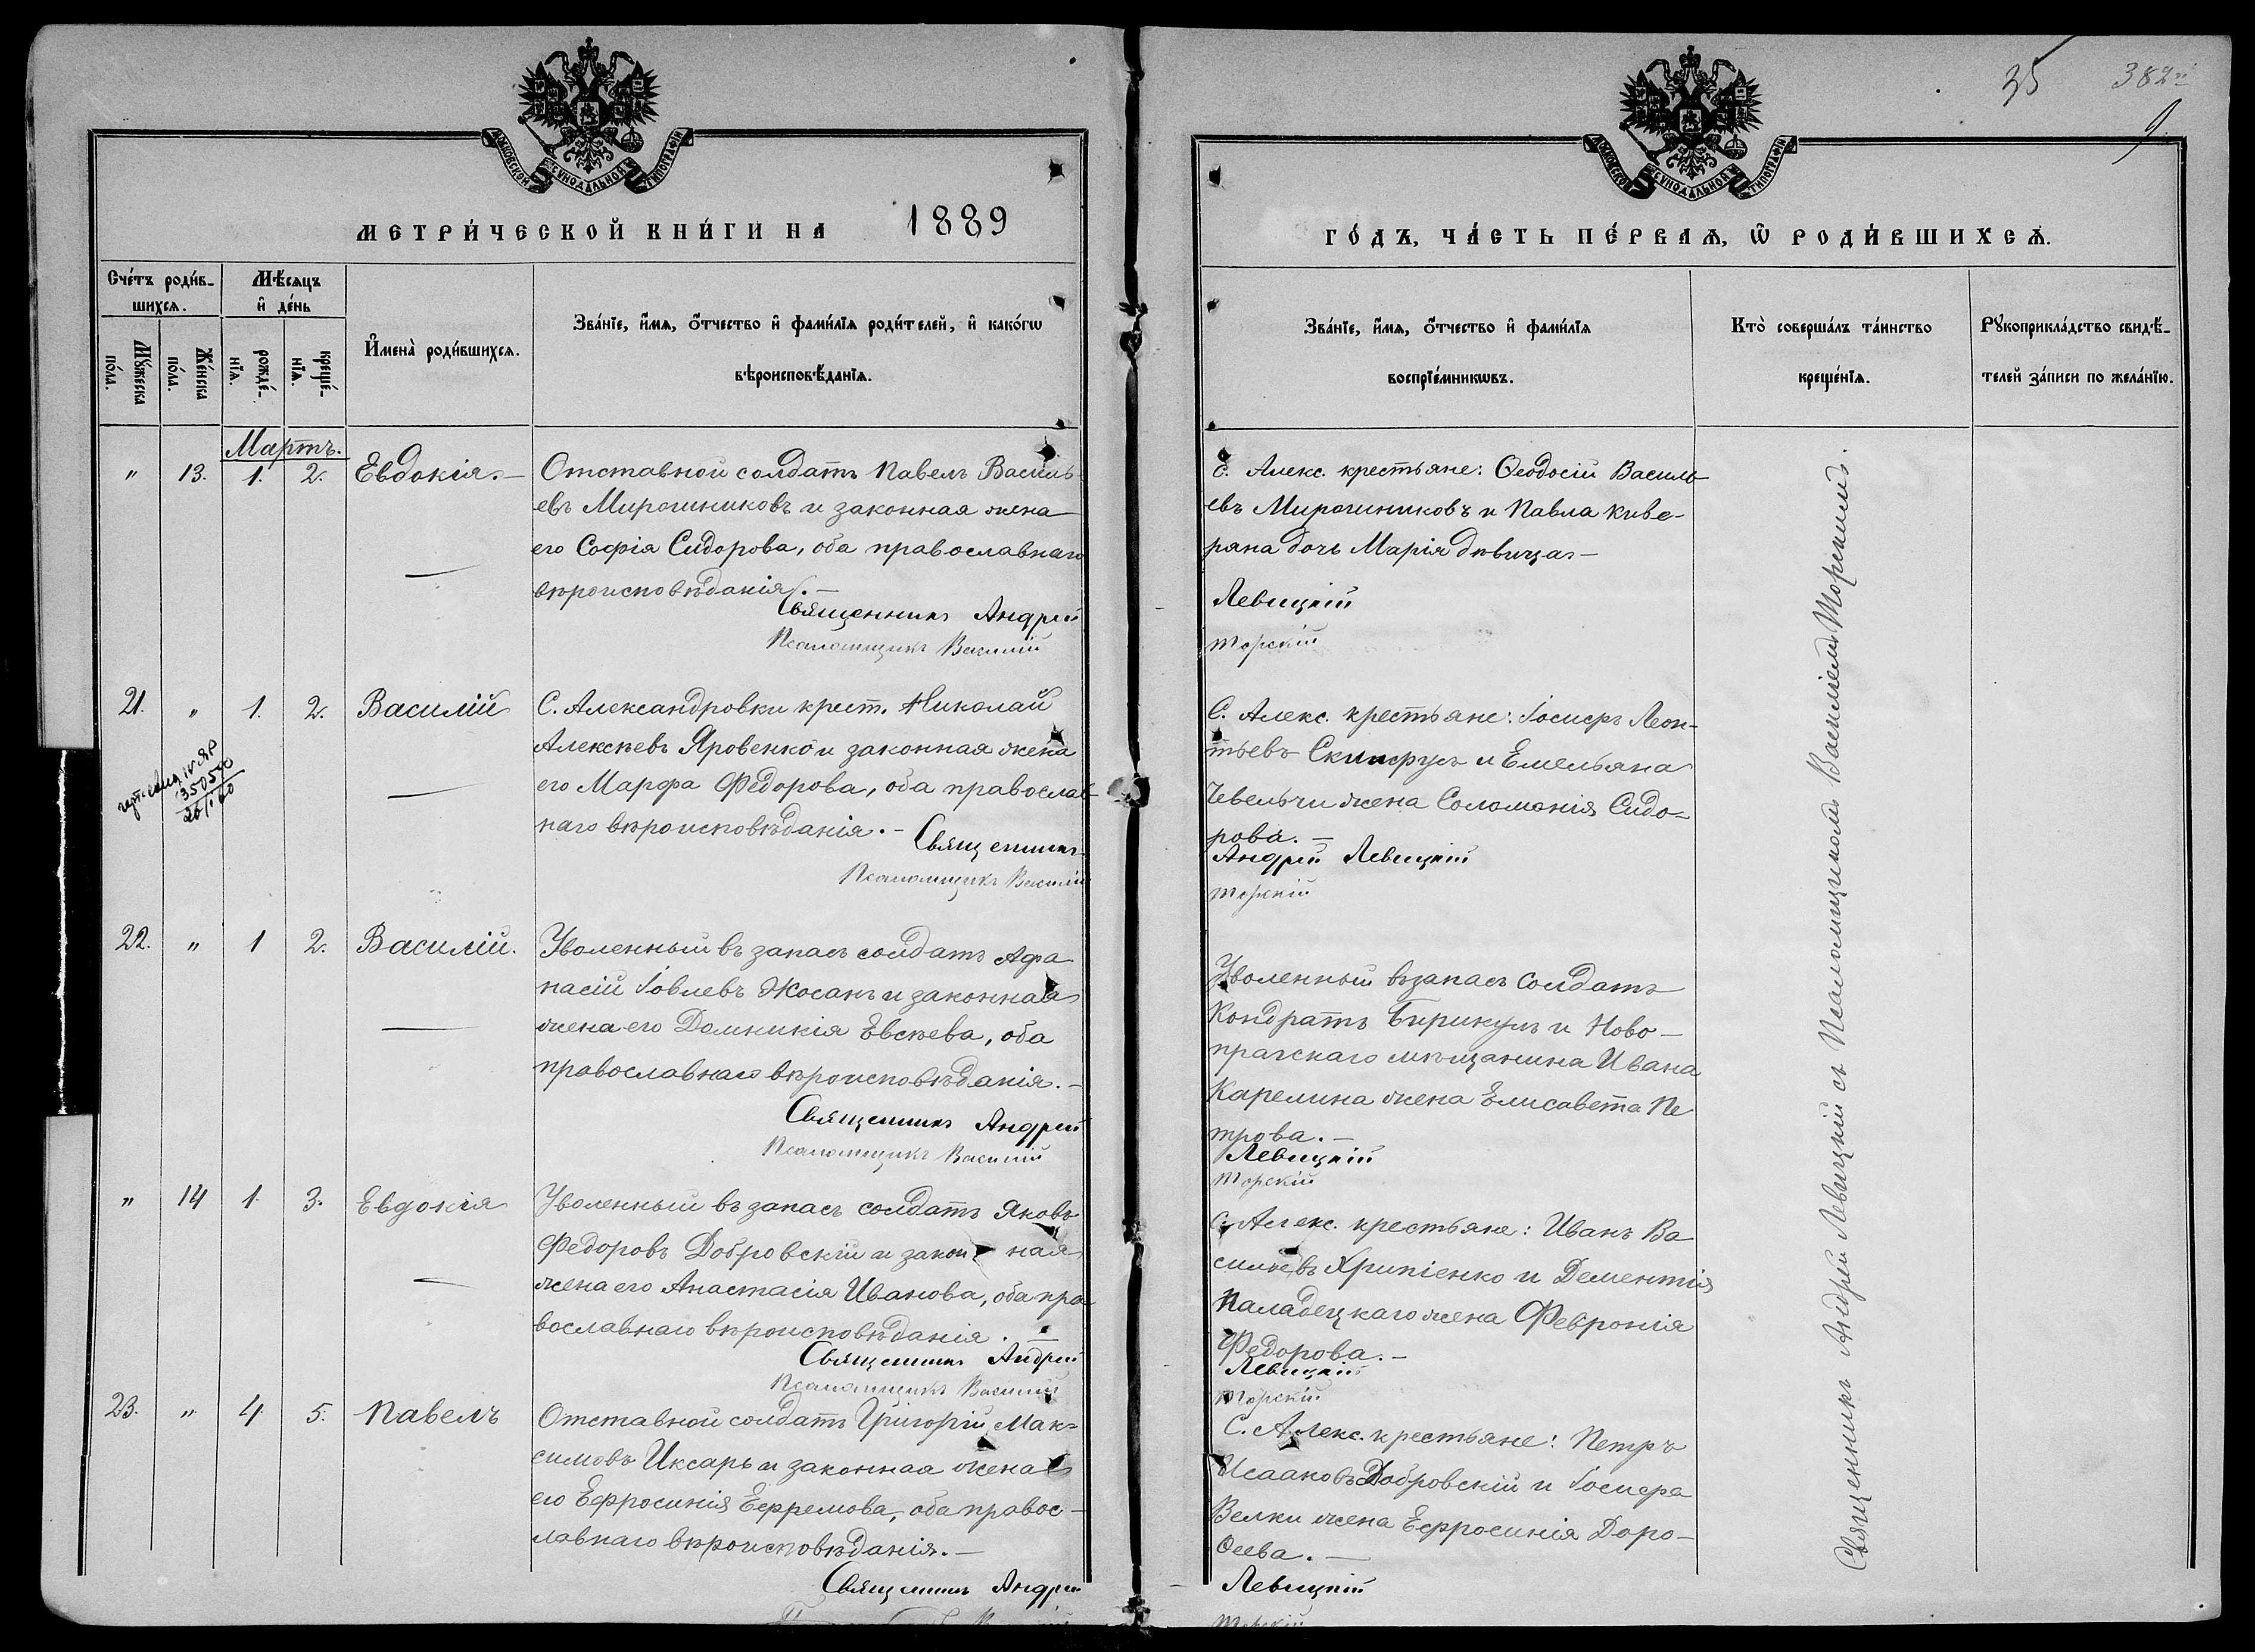 35 382
9.
МОСКОВСКОЙ СУНОДАЛЬНОЙ ТИПОГРАФІИ
МОСКОВСКОЙ СУНОДАЛЬНОЙ ТИПОГРАФІИ
МЕТРИ́ЧЕСКОЙ КНИ́ГИ НА 1889
ГО́ДЪ, ЧА́СТЬ ПЕ́РВАѦ, Ѡ РОДИ́ВШИХСѦ.
Сче́тъ роди́в-
шихсѧ.
Мѣ́сѧцъ
и де́нь
Мꙋ́жеска
по́ла.
Же́нска
по́ла.
рожде́-
нїѧ.
креще́-
нїѧ.
Имена̀ роди́вшихсѧ.
Зва́нїе, и́мѧ, о́тчество и фами́лїѧ роди́телей, и како́гѡ
вѣроисповѣ́данїѧ.
Зва́нїе, и́мѧ, о́тчество и фами́лїѧ
воспрїе́мникѡвъ.
Кто̀ соверша́лъ та́инство
креще́нїѧ.
Рꙋкоприкла́дство свидѣ́-
телей за́писи по жела́нїю.
Мартъ.
" 13. 1. 2. Евдокія.—
Отставной солдатъ Павелъ Василь-
евъ Мирошниковъ и законная жена
его Софія Сидорова, оба православнаго
вѣроисповѣданія.—
Священникъ Андрей
Псаломщикъ Василій
С. Алекс. крестьяне: Ѳеодосій Василь
евъ Мирошниковъ и Павла Киве-
ряна дочь Марія дѣвица.—
Левицкій
Торскій
21. " 1. 2. Василій
350540
С. Александровки крест. Николай
Алексѣевъ Яровенко и законная жена
его Марфа Федорова, оба православ-
наго вѣроисповѣданія.—
Священникъ
Псаломщикъ Василій
С. Алекс. крестьяне: Іосифъ Леон-
тьевъ и Емельяна
жена Соломонія Сидо-
рова.—
Андрей Левицкій
Торскій
22. " 1 2. Василій.
Уволенный въ запасъ солдатъ Афа
насій Іовлевъ Жосанъ и законная
жена его Домникія Евсѣева, оба
православнаго вѣроисповѣданія.—
Священникъ Андрей
Псаломщикъ Василій
Уволенный въ запасъ солдатъ
Кондратъ Бирикулъ и Ново-
прагскаго мѣщанина Ивана
Карелина жена Елисавета Пе
трова.—
Левицкій
Торскій
" 14 1. 3. Евдокія
Уволенный въ запасъ солдатъ Яковъ
Федоровъ Добровскій и закон ная
жена его Анастасія Иванова, оба пра-
вославнаго вѣроисповѣданія.—
Священникъ Андрей
Псаломщикъ Василій
С. Алекс. крестьяне: Иванъ Ва
сильевъ Хрипіенко и Дементія
Паладецкаго жена Февронія
Федорова.—
Левицкій
Торскій
23. " 4. 5. Павелъ
Отставной солдатъ Григорій Мак-
симовъ Иксарь и законная жена
его Ефросинія Ефремова, оба правос-
лавнаго вѣроисповѣданія.—
Священникъ Андрей
С. Алекс. крестьяне: Петръ
Исааковъ Добровскій и Іосифа
Велки жена Ефросинія Доро-
ѳеева.—
Левицкій
Торскій
Священникъ Андрей Левицкій съ Псаломщикомъ Василіемъ Торскимъ.